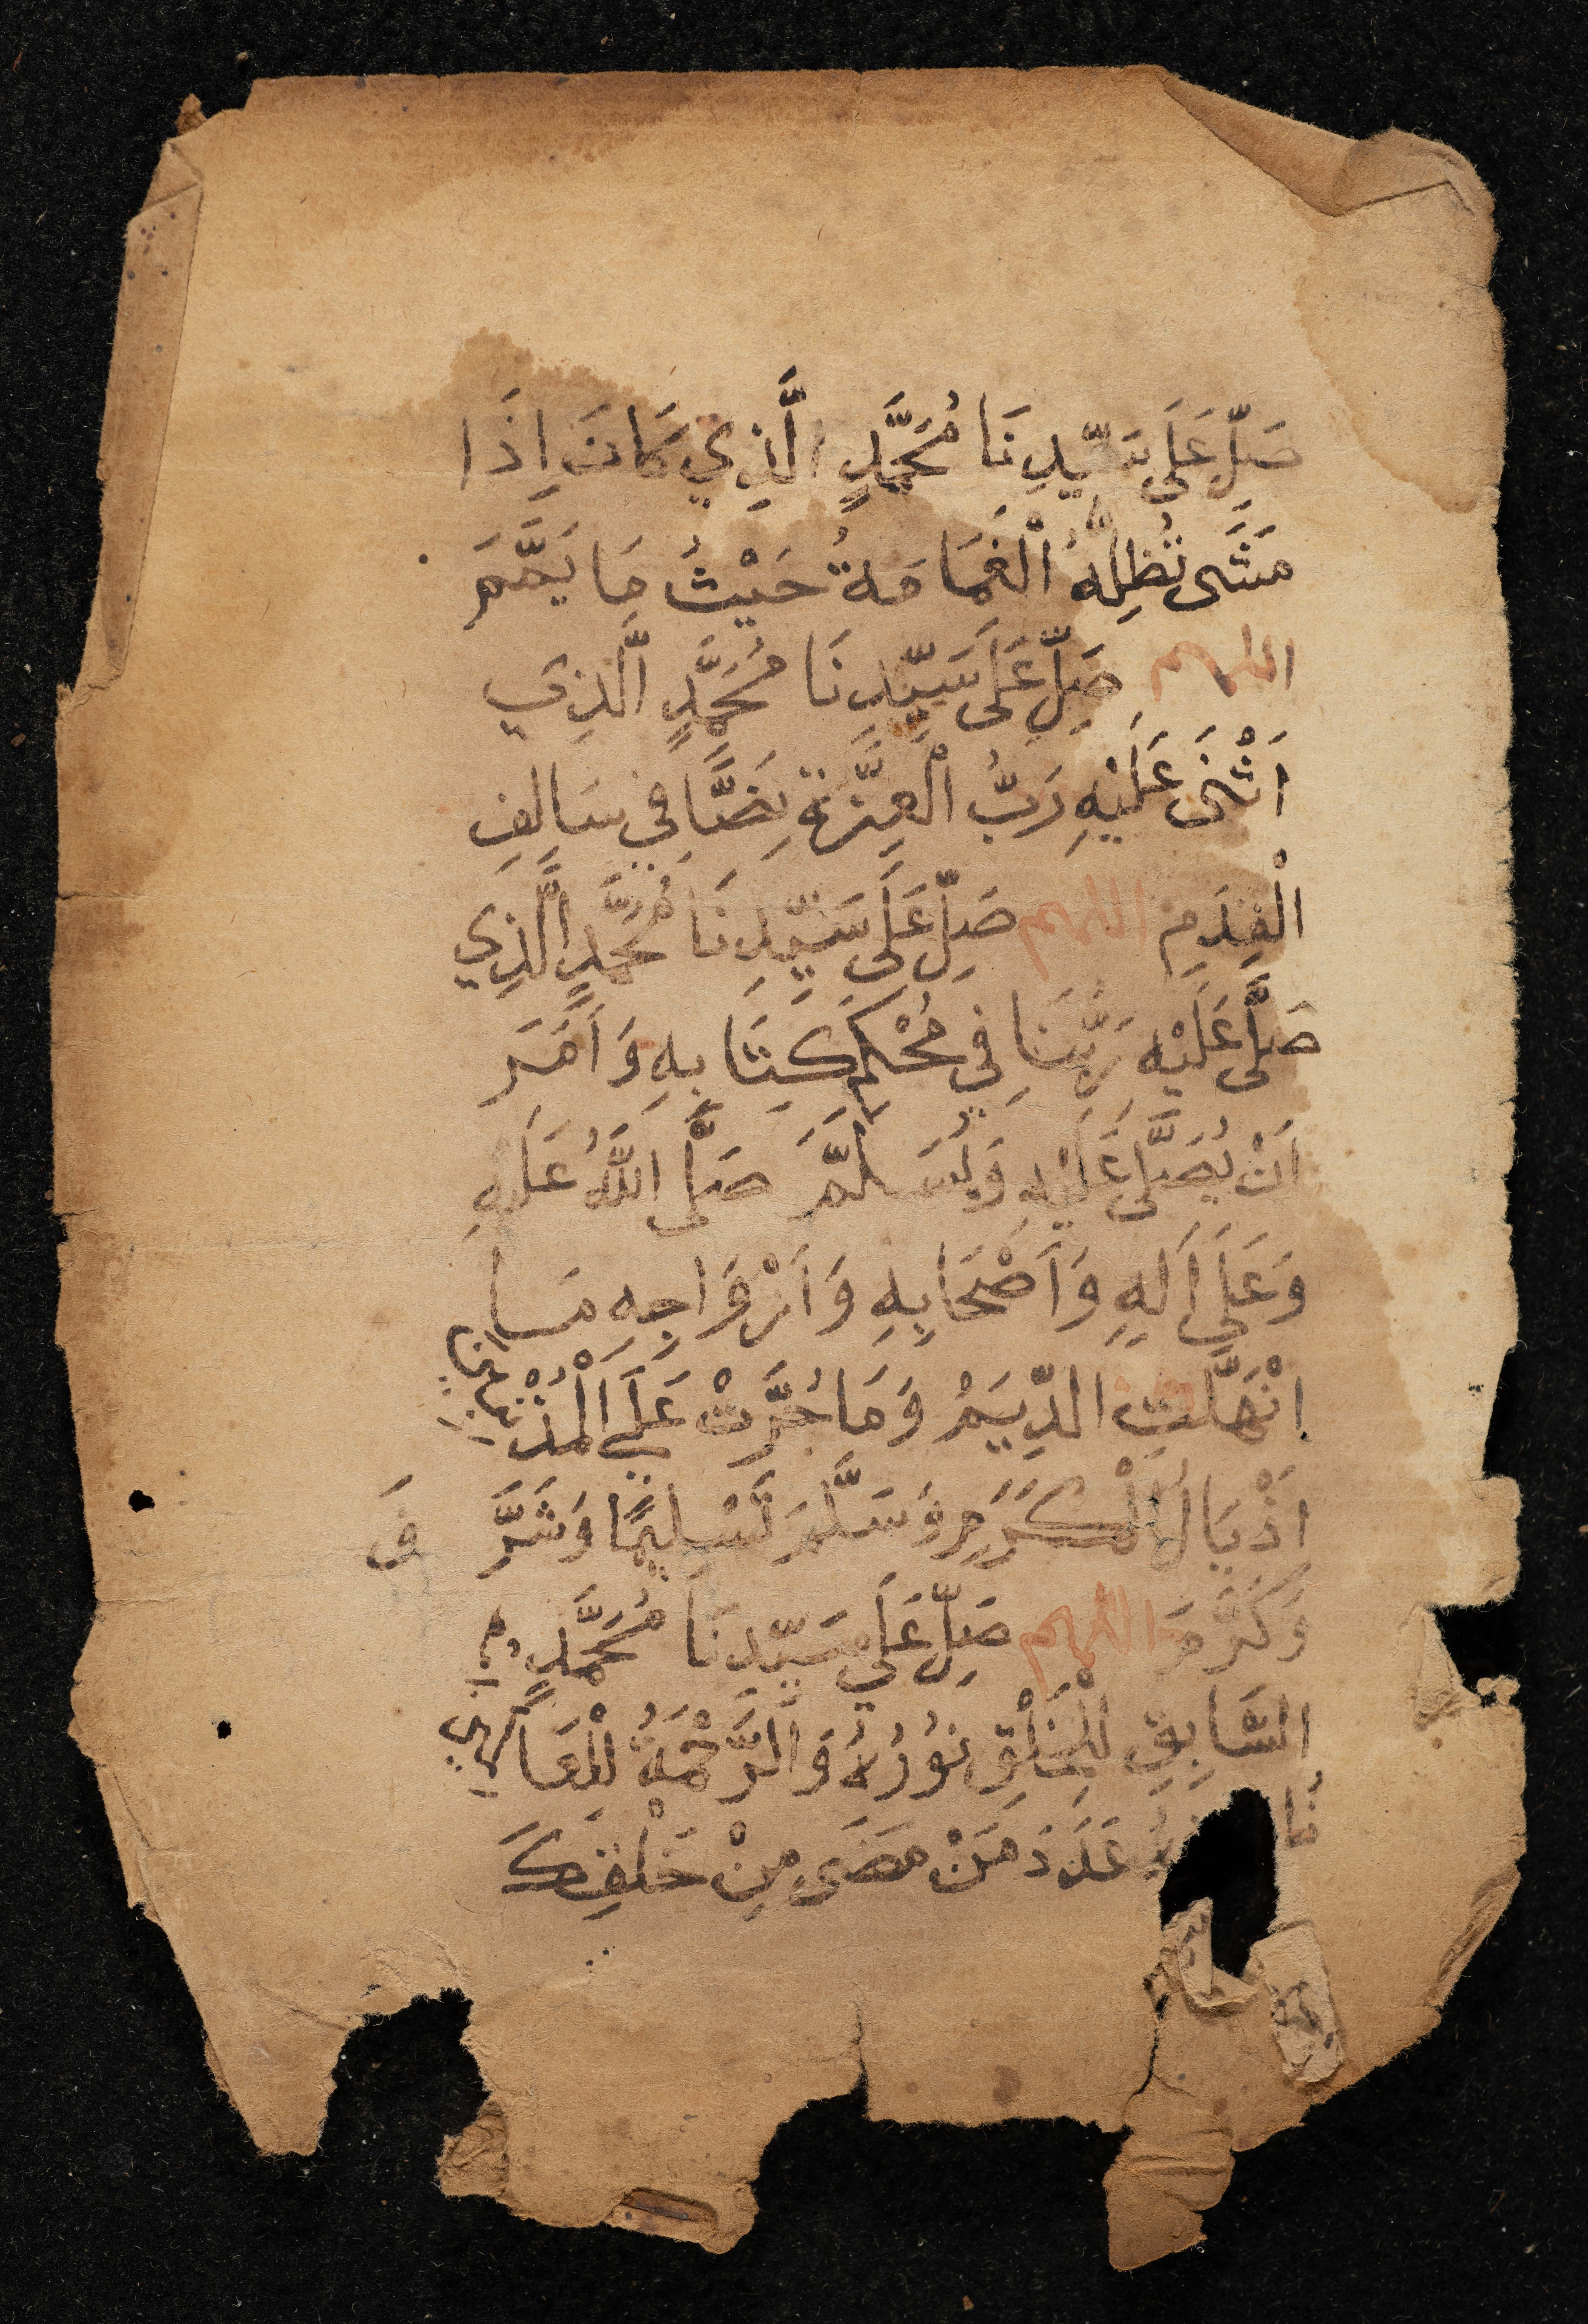 صَلِّ عَلَى سَيِّدِنَا مُحَمَّدٍ الَّذِي كَانَ اِذَا
مَشَى تُظِلُّهُ الْغَمَامَةُ حَيْثُ مَا يَمَّمَ
اللهم صَلِّ عَلَى سَيِّدِنَا مُحَمَّدٍ الَّذِي
اَثْنَى عَلَيْهِ رَبُّ الْعِزَّةِ نَصًّا فِي سَالِفِ
الْقِدَمِ اللهم صَلِّ عَلَى سَيِّدِنَا مُحَمَّدٍ الَّذِي
صَلَّى عَلَيْهِ رَبُّنَا فِي مُحْكَمِ كِتَابِهِ وَاَمَرَ
اَنْ يُصَلَّى عَلَيْهِ وَيُسَلَّمَ صَلَّى اللَّهُ عَلَيْهِ
وَعَلَى اَلِهِ وَاَصْحَابِهِ وَاَزْوَاجِهِ مَا
انْهَلَّتِ الدِّيَمُ وَمَا جُرَّتْ عَلَى الْمُذْنِبِينَ
اَذْيَالُ الْكَرَمِ وَسَلَّمَ تَسْلِيمًا وَشَرَّفَ
وَكَرَّمَ اللهم صَلِّ عَلَى سَيِّدِنَا مُحَمَّدٍ
السَّابِقِ لِلْخَلْقِ نُوُرُهُ وَالرَّحْمَةُ لِلْعَالَمِينَ
عَدَدَ مَنْ مَضَى مِنْ خَلْقِكَ